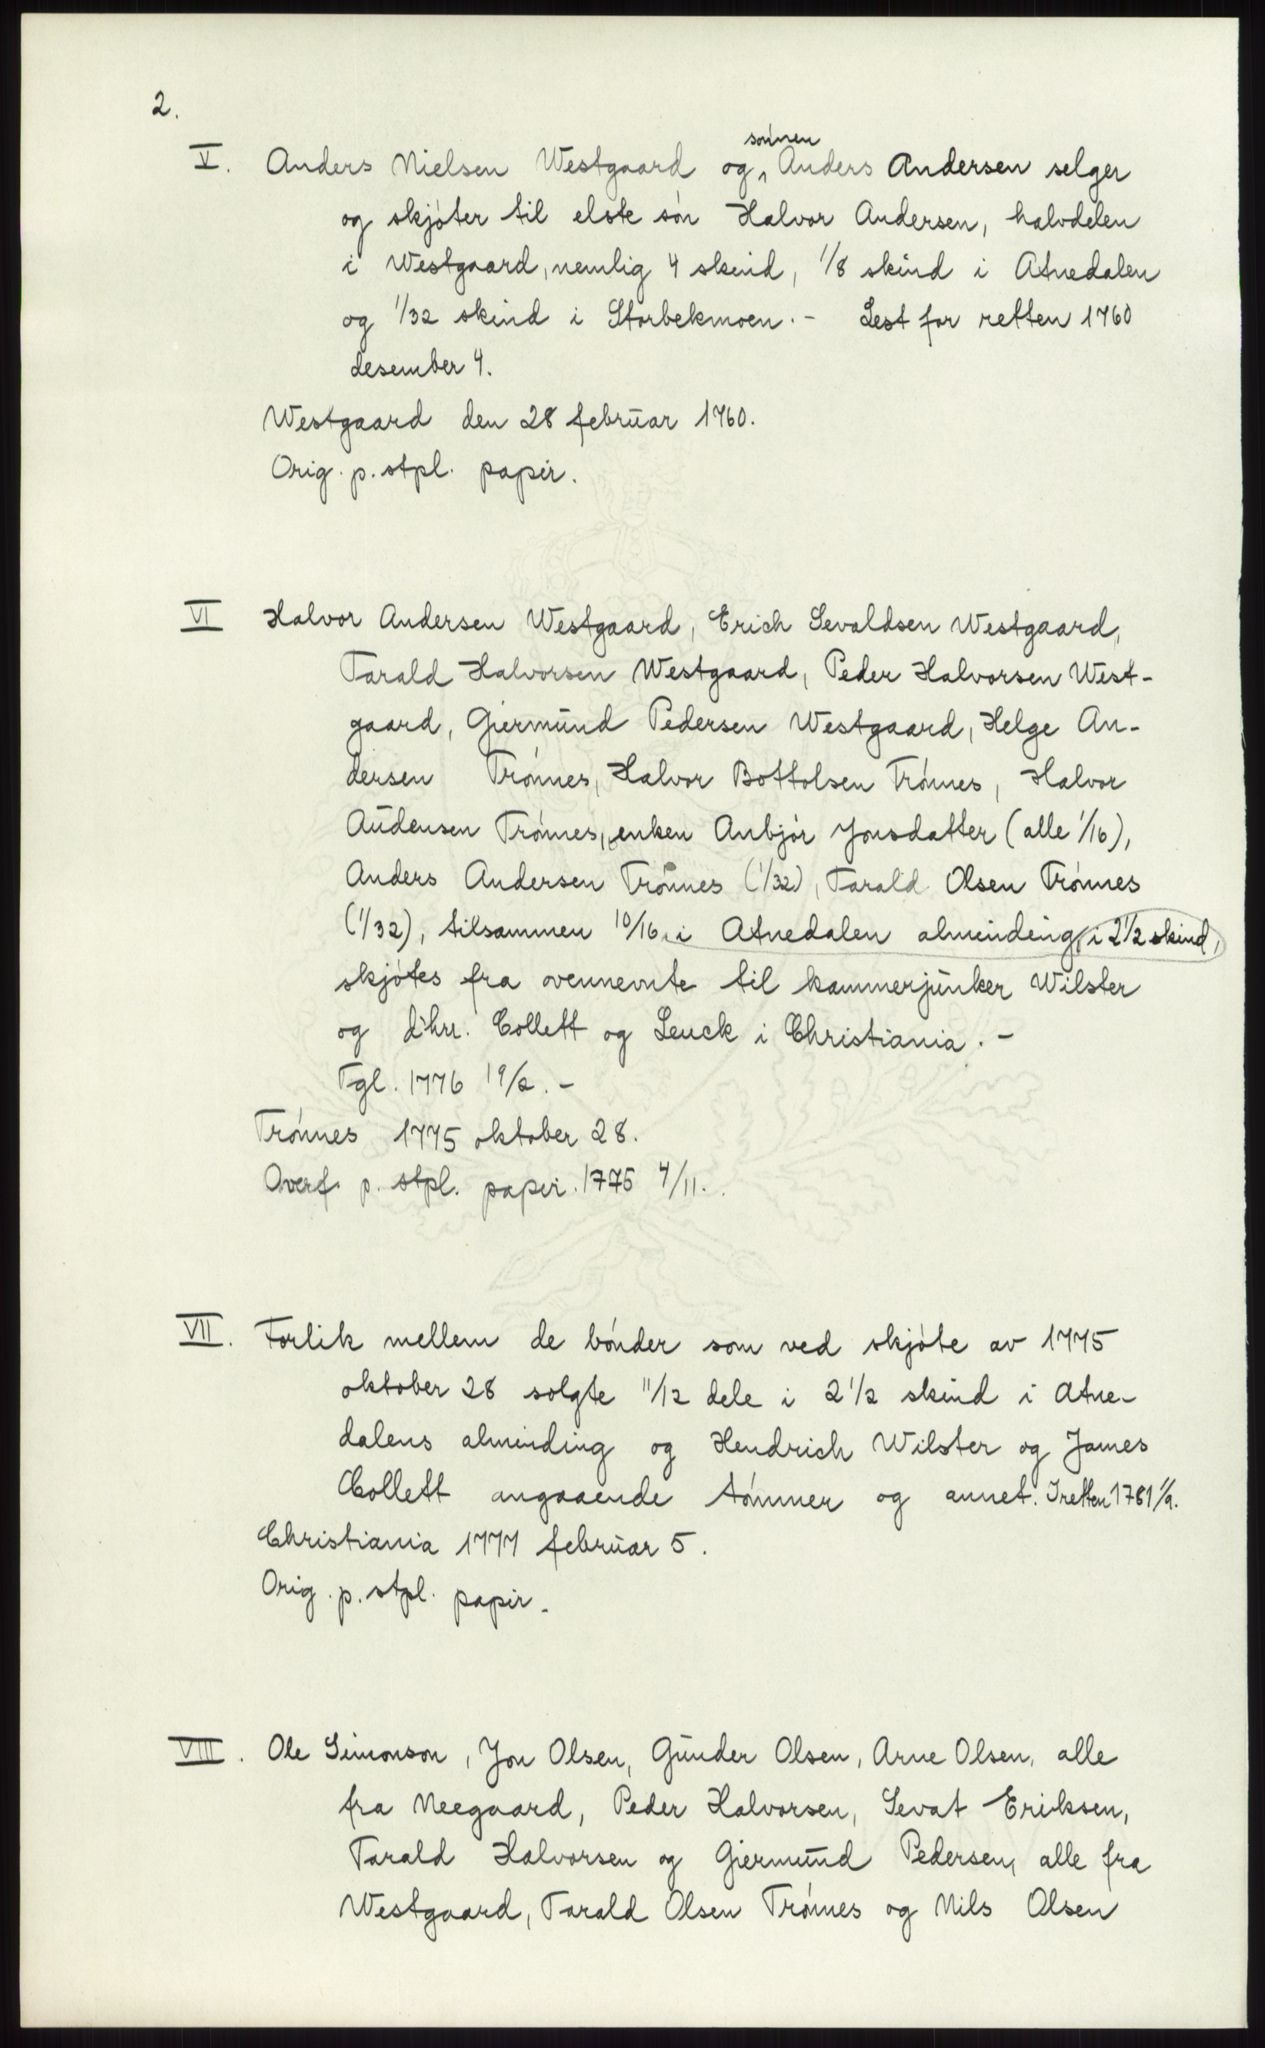 2.
sónnen
V. Anders Nielsen Westgaard og, Anders Andersen selger
og skjóter til elste són Halvor Andersen, halvdelen
i Westgaard, nemlig 4 skind, 1/8 skind i Atnedalen
og 1/32 skind i Storbekmoen. - Lest for retten 1760
desember 4.
Westgaard den 28 februar 1760.
Orig. p. stpl. papir.
VI Halvor Andersen Westgaard, Erich Sevaldsen Westgaard,
Tarald Halvorsen Westgaard, Peder Halvorsen West-
gaard, Giermund Pedersen Westgaard, Helge An-
dersen Trónnes, Halvor Bottolsen Trónnes, Halvor
Audensen Trónnes, enken Anbjór Jonsdatter (alle 1/16),
Anders Andersen Trónnes (1/32), Tarald Olsen Trónnes
(1/32), tilsammen 10/16 i Atnedalen alminding, i 2 1/2 skind,
skjótes fra ovennevnte til kammerjunker Wilster
og d'hrr. Collett og Leuck i Christiania. -
Tgl. 1776 19/2. -
Trónnes 1775 oktober 28.
Overf p. stpl. papir. 1775 4/11.
VII. Forlik mellem de bónder som ved skjóte av 1775
oktober 28 solgte 11/12 dele i 2 1/2 skind i Atne-
dalens alminding og Hendrich Wilster og James
Collett angaaende tómmer og annet. I retten 1781 1/9.
Christiania 1777 februar 5.
Orig. p. stpl. papir.
VIII. Ole Simonson, Jon Olsen, Gunder Olsen, Arne Olsen, alle
fra Neegaard, Peder Halvorsen, Sevat Eriksen,
Tarald Halvorsen og Giermund Pedersen, alle fra
Westgaard, Tarald Olsen Trónnes og Nils Olsen